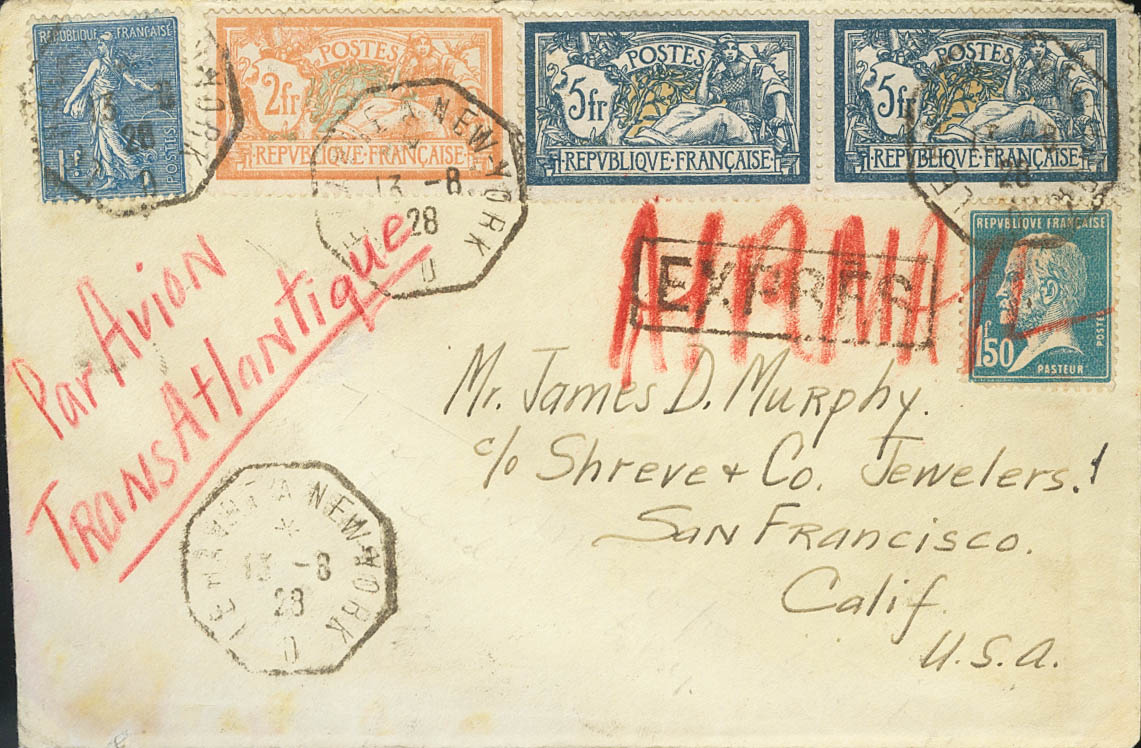 REPUBLIQUE FRANÇAISE
POSTES
POSTES
2fr
REPVBLIQVE·FRANÇAISE
POSTES
5fr
REPVBLIQVE·FRANÇAISE
POSTES
5fr
REPVBLIQVE·FRANÇAISE
13 -8
28
D
A NEW-YORK
13 -8
28
D
28
REPVBLIQVE FRANÇAISE
1f50
POSTES
PASTEUR
EXPRÈS
Par Avion
TransAtlantique
Mr. James D. Murphy.
c/o Shreve & Co. Jewelers.
San Francisco.
Calif.
U.S.A.
LE HAVRE A NEW-YORK
*
13 -8
28
D